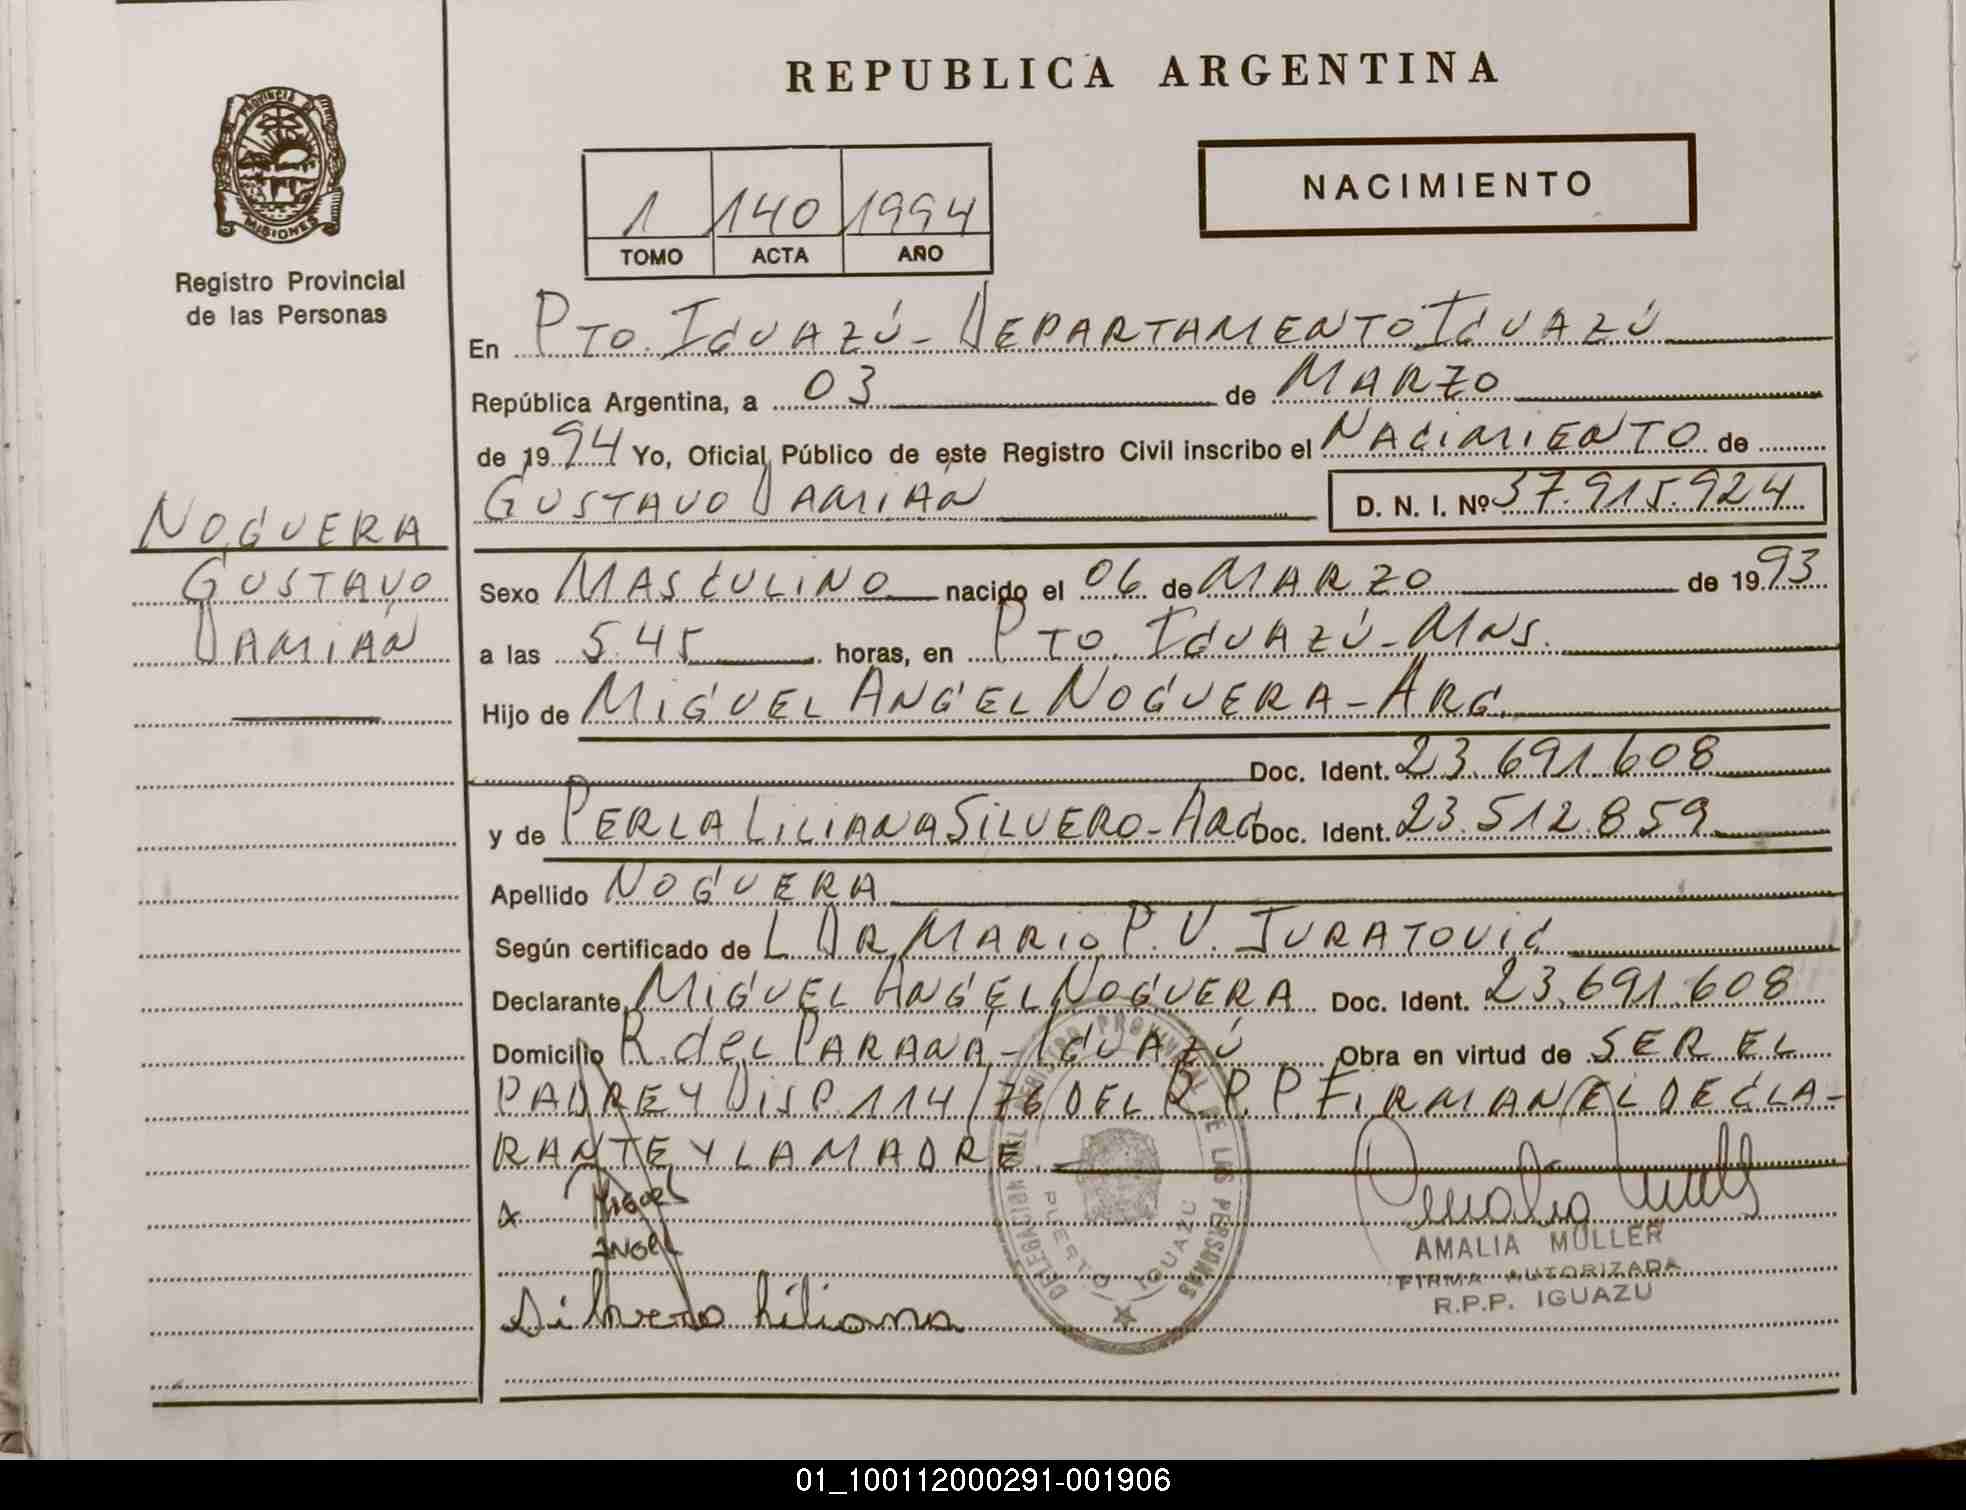 REPUBLICA ARGENTINA
PROVINCIA DE
MISIONES
Registro Provincial
de las Personas
1 140 1994
TOMO ACTA AÑO
NACIMIENTO
En PTO. IGUAZÚ - DEPARTAMENTO IGUAZÚ
República Argentina, a 03 de MARZO
de 1994 Yo, Oficial Público de este Registro Civil inscribo el NACIMIENTO de
GUSTAVO DAMIÁN D. N. I. Nº 37.915.924
NOGUERA
GUSTAVO
DAMIÁN
Sexo MASCULINO nacido el 06 de MARZO de 1993
a las 5.45 horas, en PTO. IGUAZÚ - MNS.
Hijo de MIGUEL ANGEL NOGUERA - ARG.
Doc. Ident. 23.691.608
y de PERLA LILIANA SILVERO - ARG Doc. Ident. 23.512.859
Apellido NOGUERA
Según certificado de L DR MARIO P. V. JURATOVIC
Declarante MIGUEL ANGEL NOGUERA Doc. Ident. 23.691.608
Domicilio R. del PARANÁ - IGUAZÚ Obra en virtud de SER EL
PADRE Y DISP. 114/76 DEL R.P.P. FIRMAN EL DECLA-
RANTE Y LA MADRE
MIGUEL
ANGEL
Silvero Liliana
DELEGACION DEL REGISTRO PROVINCIAL DE LAS PERSONAS
PUERTO IGUAZU
AMALIA MULLER
FIRMA AUTORIZADA
R.P.P. IGUAZU
01_100112000291-001906